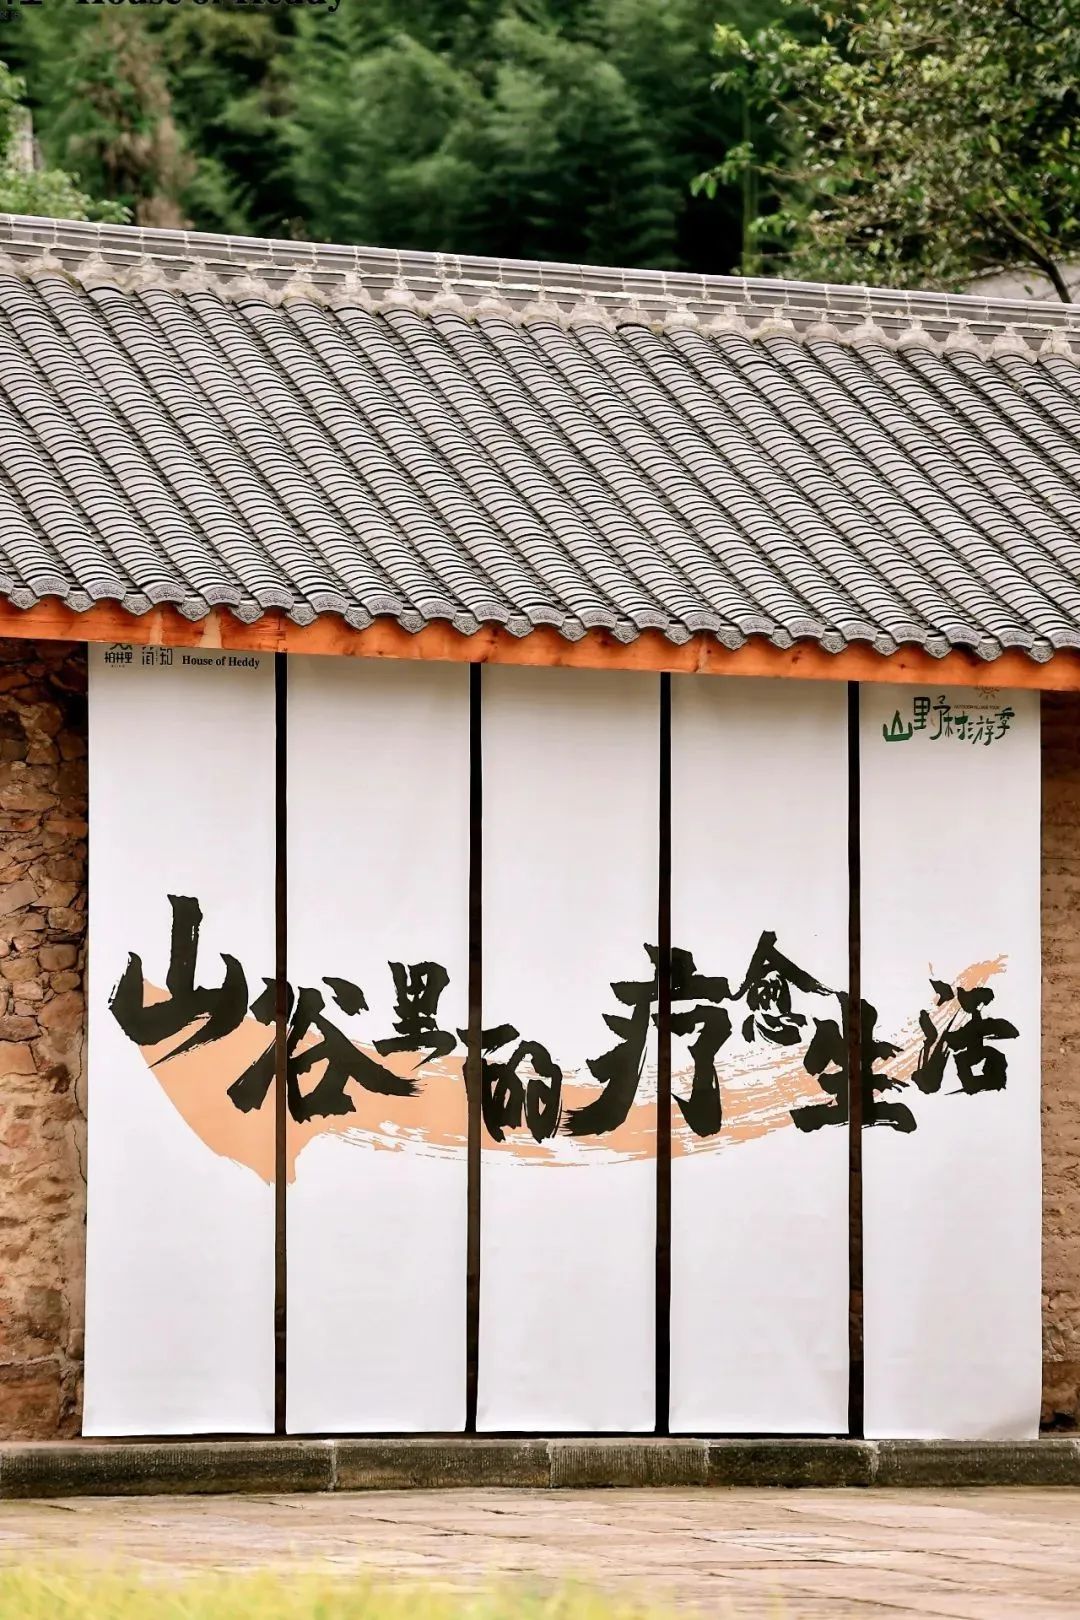 House of Heddy
柏林里 简知 House of Heddy
山野村游季
OUTDOOR VILLAGE TOUR
山谷里的疗愈生活